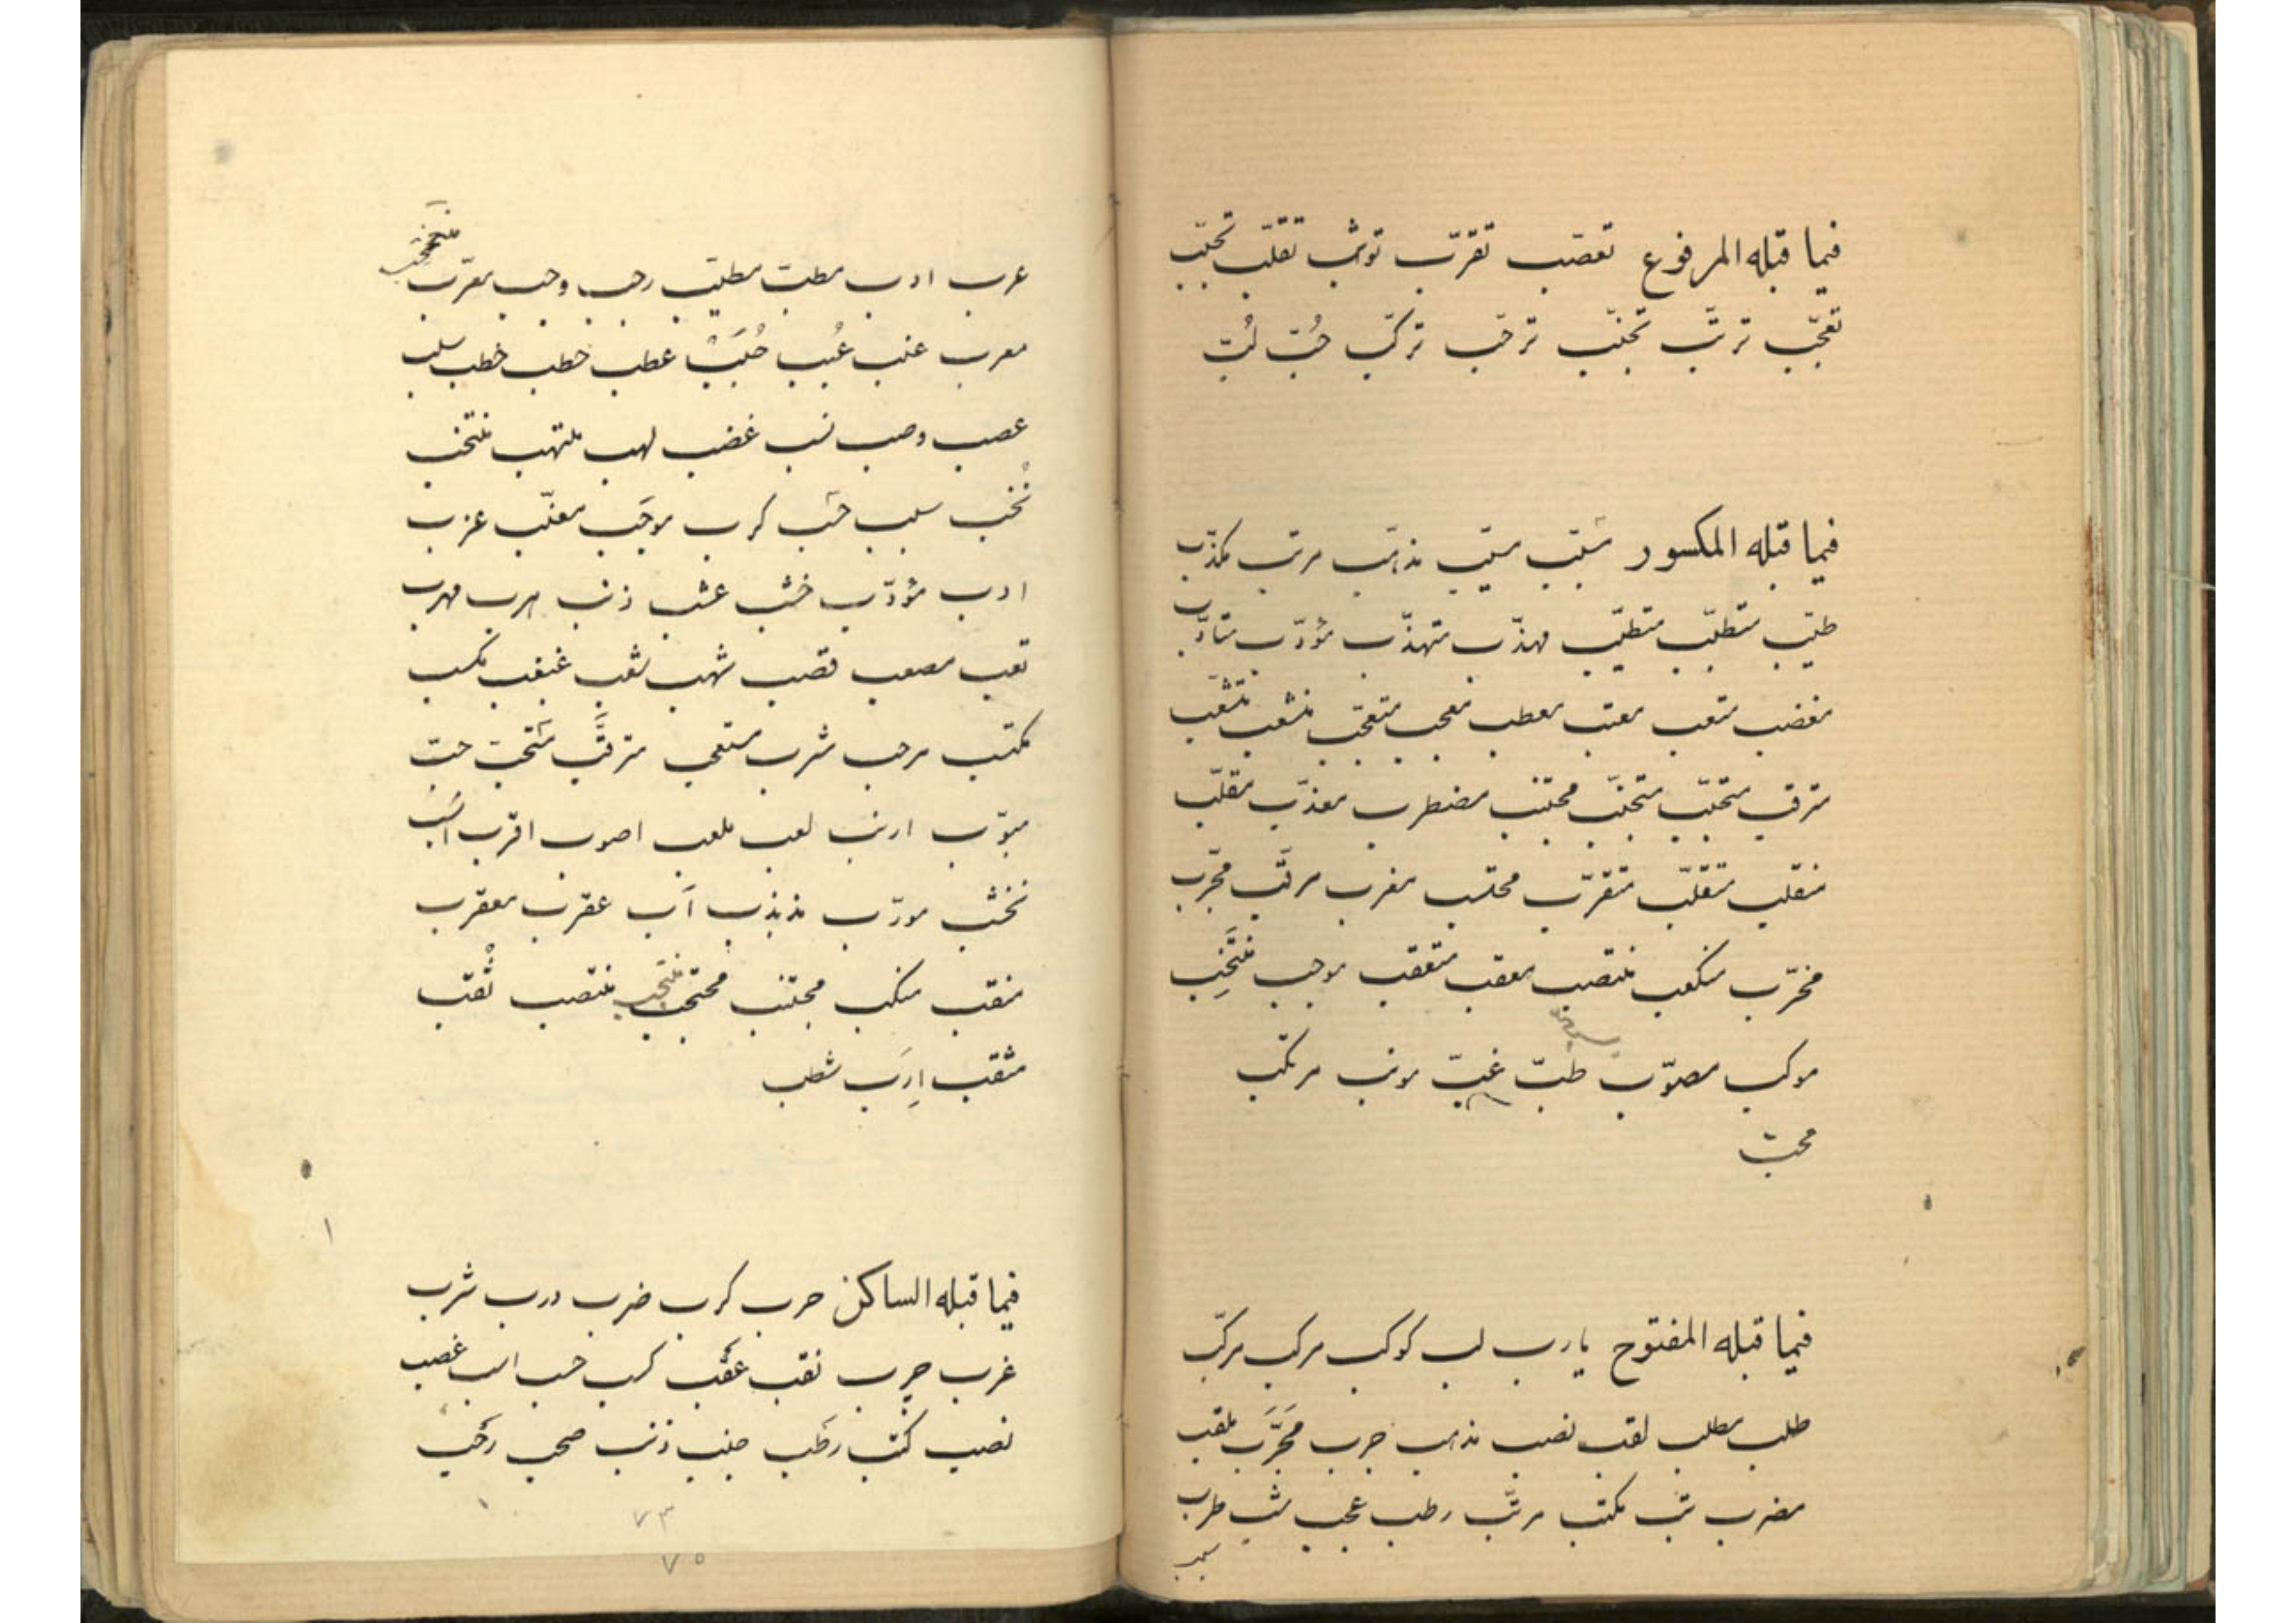 فيما قبله المرفوع تعصّب تقرّب توثّب تقلّب تحبّب
تعجّب ترتّب تجنّب ترحّب تركّب حُبّ لُبّ
فيما قبله المكسور مسبّب مذهّب مرتّب مكذّب
طيّب متطلّب متطيّب مهذّب متهذّب مؤدّب متأدّب
مغضب متعب معتب معطب معجب متعجّب منشعب متشعّب
مترقب متحبّب متجنّب مجتنب مضطرب معذّب مقلّب
منقلب متقلّب متقرّب محتسب مغرب مرتّب مجرّب
مخرّب منتصب معقب متعقب موجب مُنتخِب
موكب مصوّب طبّ غبّ مرتكب
محبّ
فيما قبله المفتوح يا رب لب كوكب مركب مركّب
طلب مطلب لقب نصب مذهب جرب مُجرَّب ملقب
مضرب تب مكتب مرتّب رطب عجب شب طرب
سبب
عرب ادب مطبّ مطيّب رجب وجب معرّب
معرب عنب عطب حطب خطب سلب
عصب وصب نسب غضب لهب ملتهب منتخب
نُخب سلب كرب موجَب معذّب عزب
ادب مؤدّب خشب عشب ذنب هرب مهرب
تعب مصعب قصب شهب شعب مكسب
مكتب مرحب شرب مترقَّب مستحَبّ حبّ
مبوّب ارنب لعب ملعب اصوب اقرب انسب
مذبذب عقرب معقرب
منقب منكب مجتنب محتجب منتخب منتصب ثُقب
مثقب اِرَب شطب
فيما قبله الساكن حرب كرب ضرب درب شرب
غرب نقب عقب كسب غصب
نصب كُتب رطب جنب ذنب صحب رحب
٧٣
٧٥